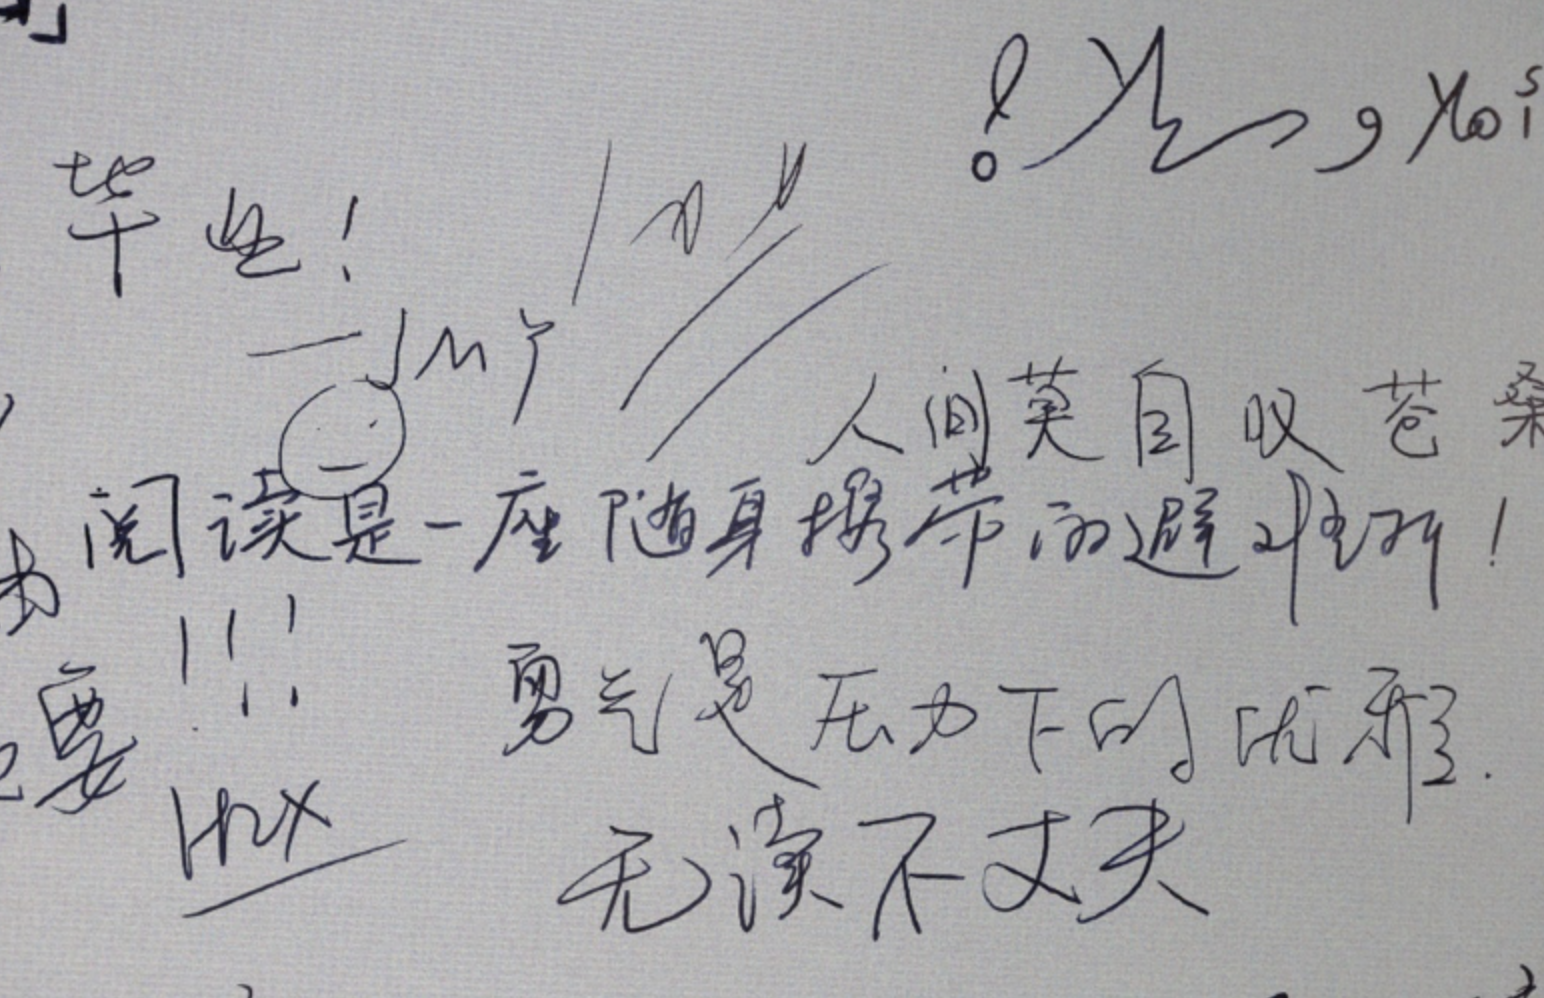 毕业!
—JMY
人间莫自叹苍桑
阅读是一座随身携带的避难所!
!!!
要
勇气是压力下的优雅.
HZX
无读不丈夫